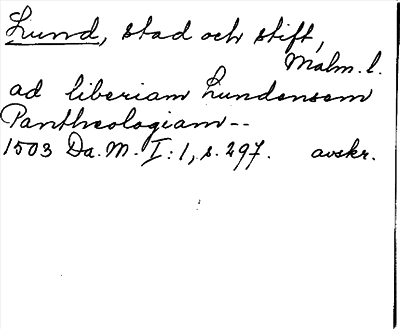 Lund, stad och stift,
Malm. l.
ad liberiam Lundensem
Pantheologiam--
1503 Da. M. I: 1, s. 297. avskr.